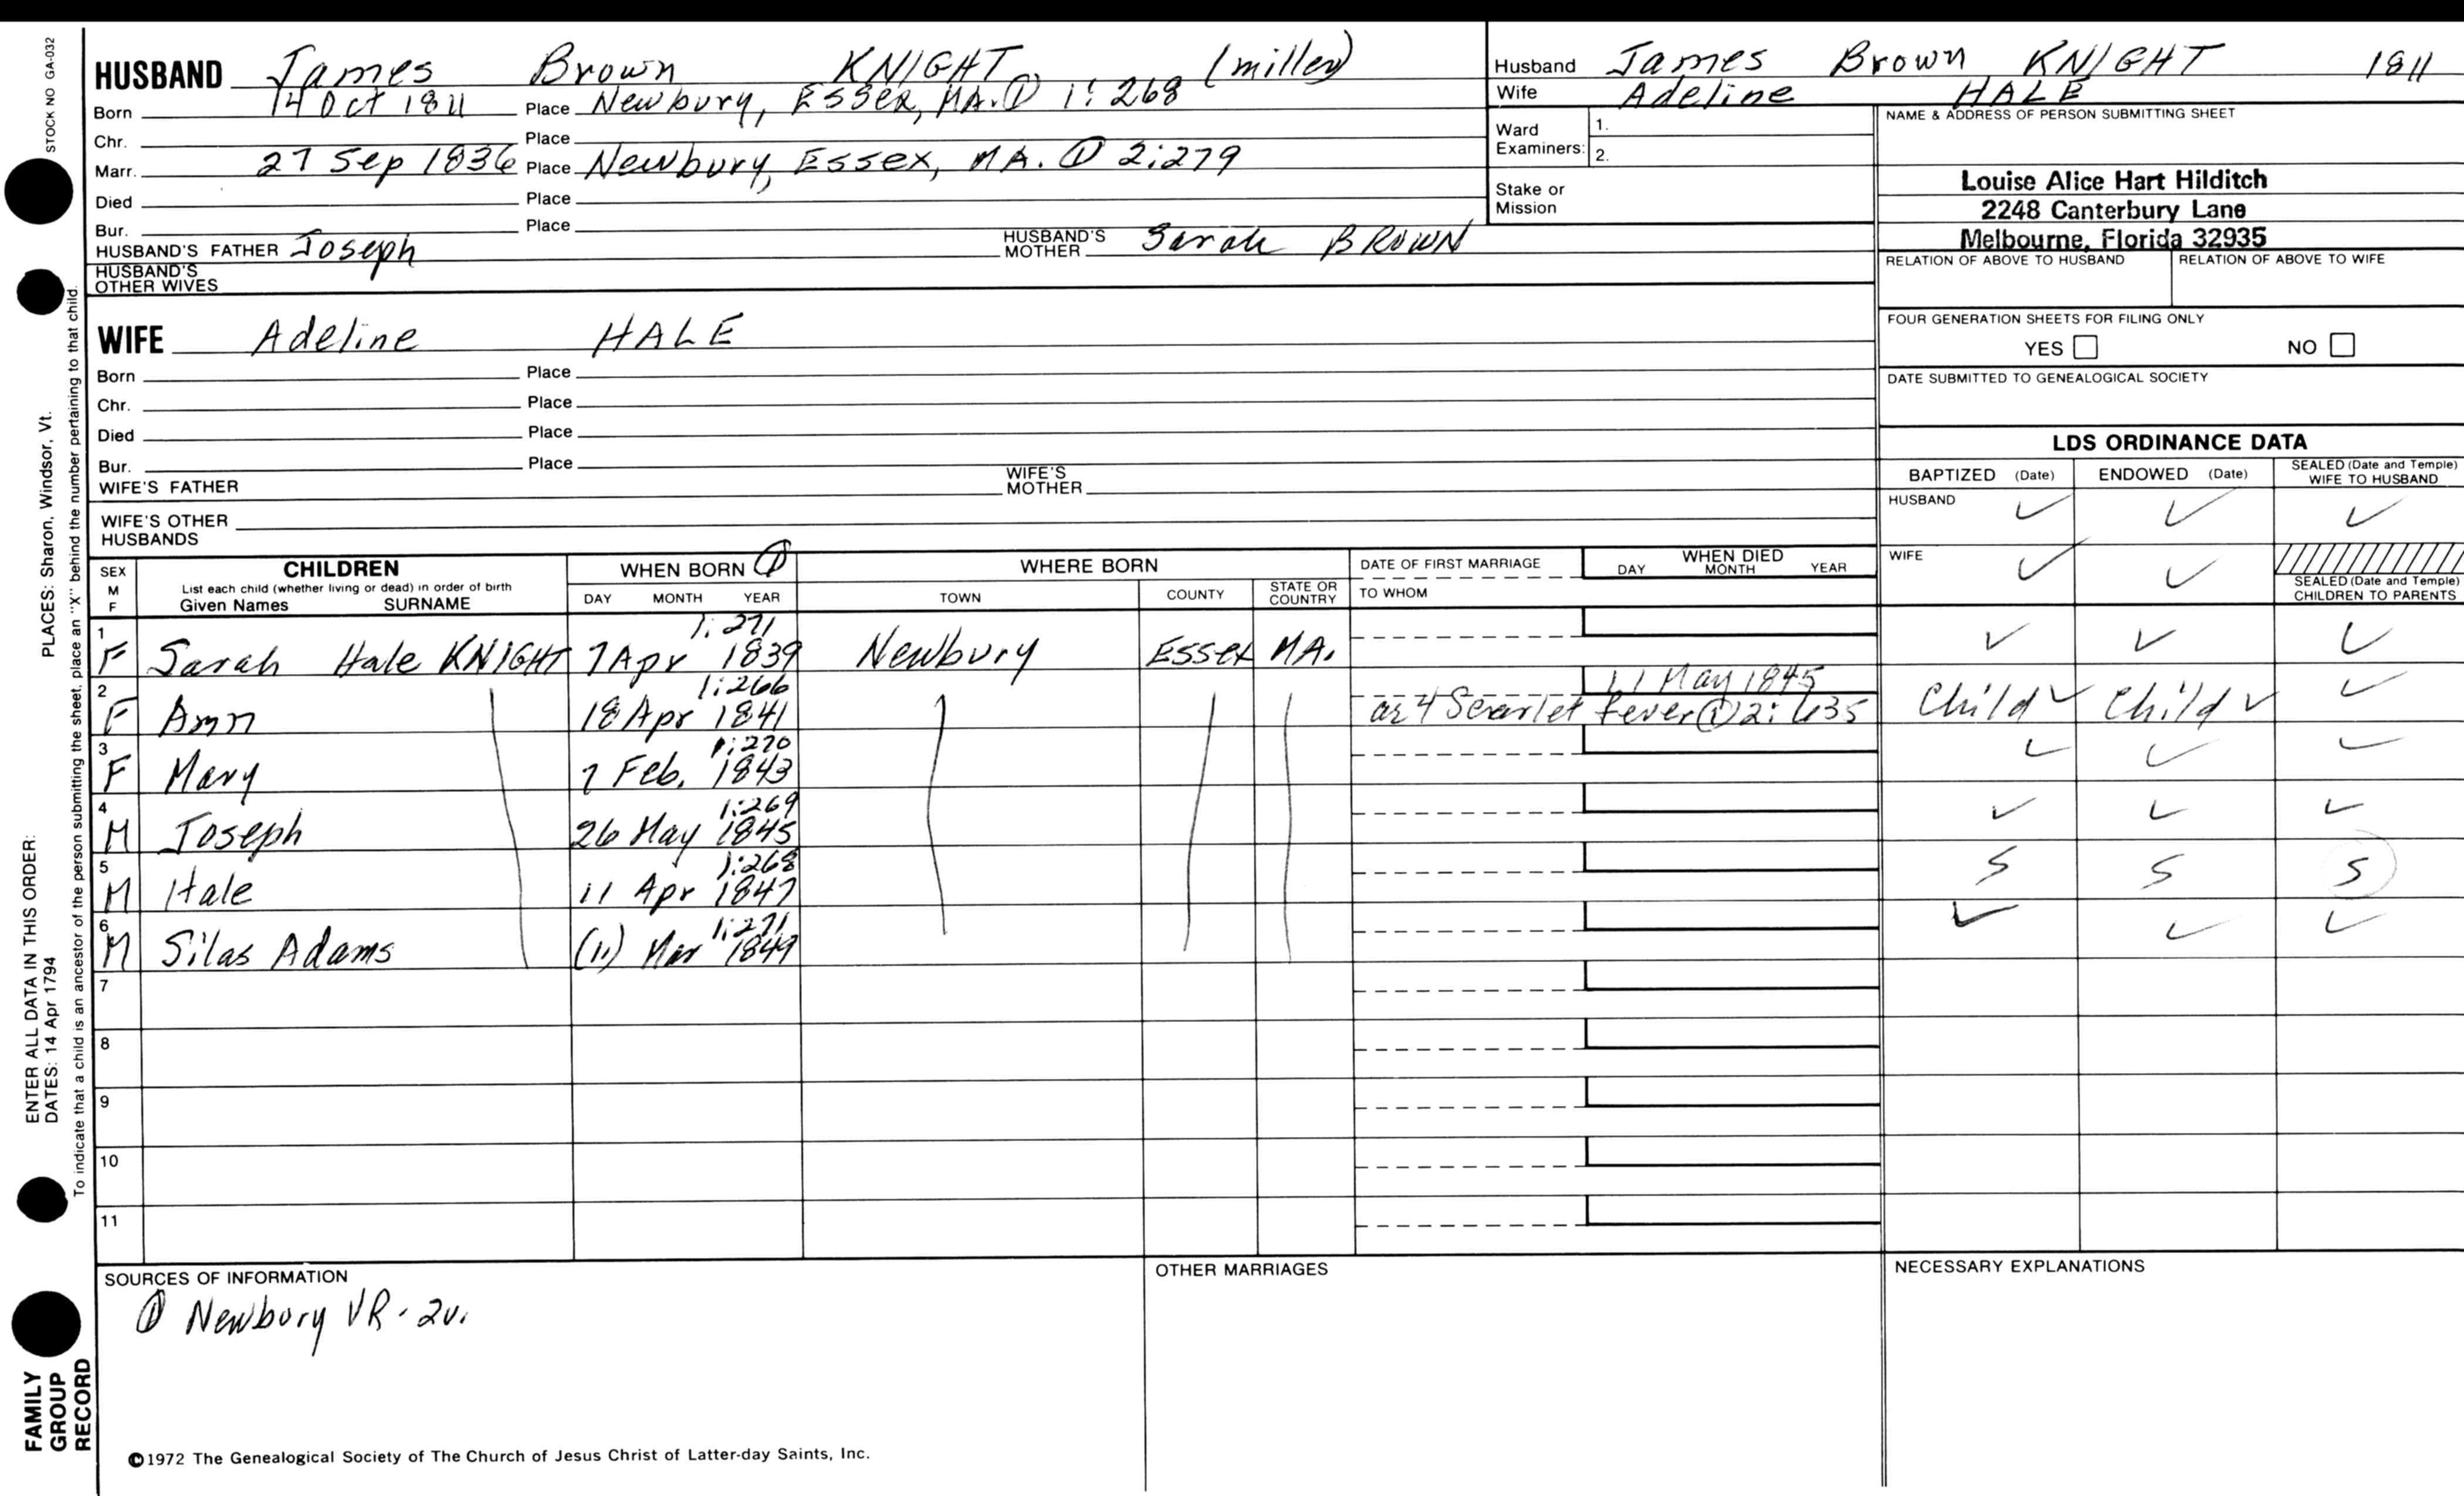 STOCK NO GA-032
HUSBAND James Brown KNIGHT (miller)
Born 14 Oct 1811 Place Newbury, Essex, MA. ① 1:268
Chr. Place
Marr. 27 Sep 1836 Place Newbury, Essex, MA. ① 2:279
Died Place
Bur. Place
HUSBAND'S FATHER Joseph HUSBAND'S MOTHER Sarah BROWN
HUSBAND'S OTHER WIVES
WIFE Adeline HALE
Born Place
Chr. Place
Died Place
Bur. Place
WIFE'S FATHER WIFE'S MOTHER
WIFE'S OTHER HUSBANDS
Husband James Brown KNIGHT 1811
Wife Adeline HALE
Ward Examiners: 1.
2.
Stake or Mission
NAME & ADDRESS OF PERSON SUBMITTING SHEET
Louise Alice Hart Hilditch
2248 Canterbury Lane
Melbourne, Florida 32935
RELATION OF ABOVE TO HUSBAND RELATION OF ABOVE TO WIFE
FOUR GENERATION SHEETS FOR FILING ONLY
YES NO
DATE SUBMITTED TO GENEALOGICAL SOCIETY
LDS ORDINANCE DATA
BAPTIZED (Date) ENDOWED (Date) SEALED (Date and Temple) WIFE TO HUSBAND
HUSBAND ✓ ✓ ✓
WIFE ✓ ✓
SEALED (Date and Temple) CHILDREN TO PARENTS
SEX M F CHILDREN WHEN BORN ① WHERE BORN DATE OF FIRST MARRIAGE WHEN DIED
List each child (whether living or dead) in order of birth
Given Names SURNAME DAY MONTH YEAR TOWN COUNTY STATE OR COUNTRY TO WHOM DAY MONTH YEAR
1:271
1 F Sarah Hale KNIGHT 7 Apr 1839 Newbury Essex MA. ✓ ✓ ✓
1:266 11 May 1845
2 F Ann 18 Apr 1841 ae 4 Scarlet Fever ① 2:635 Child ✓ Child ✓ ✓
1:270
3 F Mary 7 Feb. 1843 ✓ ✓ ✓
1:269
4 M Joseph 26 May 1845 ✓ ✓ ✓
1:268
5 M Hale 11 Apr 1847 S S S
1:271
6 M Silas Adams (11) Mar 1849 ✓ ✓ ✓
7
8
9
10
11
SOURCES OF INFORMATION OTHER MARRIAGES NECESSARY EXPLANATIONS
① Newbury VR - 2v.
©1972 The Genealogical Society of The Church of Jesus Christ of Latter-day Saints, Inc.
PLACES: Sharon, Windsor, Vt.
ENTER ALL DATA IN THIS ORDER:
DATES: 14 Apr 1794
To indicate that a child is an ancestor of the person submitting the sheet, place an "X" behind the number pertaining to that child.
FAMILY
GROUP
RECORD